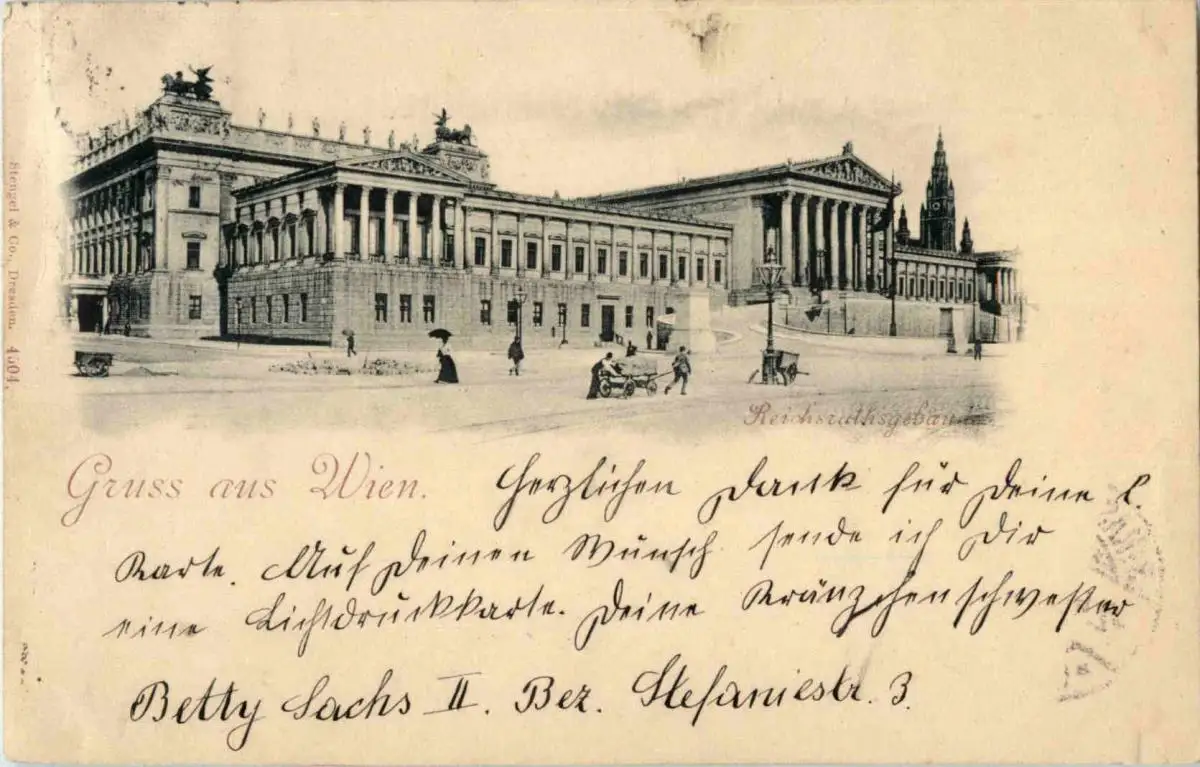 Stengel & Co., Dresden. 4504.
Reichsrathsgebäude
Gruss aus Wien.
Herzlichen Dank für Deine l.
Karte. Auf Deinen Wunsch sende ich Dir
eine Lichtdruckkarte. Deine Kränzchenschwester
Betty Sachs II. Bez. Stefaniestr. 3.